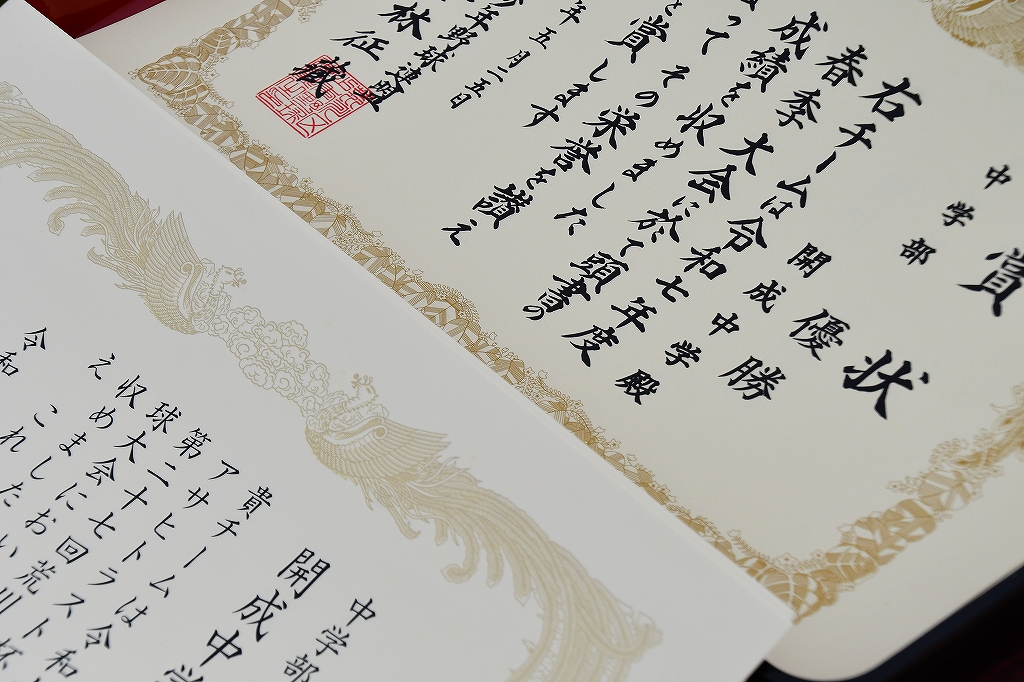 賞状
中学部
優勝
開成中学殿
右チームは令和七年度
春季大会に於て頭書の
成績を収めました
って その栄誉を讃え
賞します
年五月二五日
年野球連盟
林征蔵
中学部
開成中学
貴チームは令和
アサヒトラスト
第二十七回荒川杯
球大会におい
収めました
え これ
令和